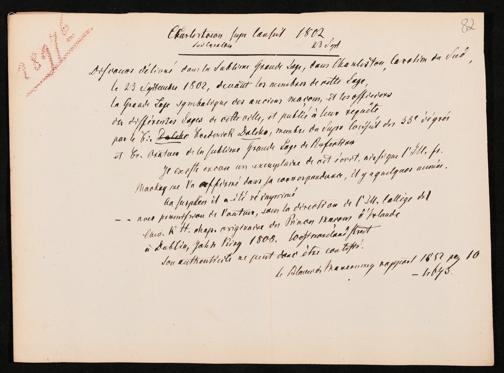 82
28976
Charlestown Supr Conseil 1802
23 Sept
Discours délivré dans la Sublime Grande Loge, dans Charleston, Caroline du Sud,
le 23 Septembre 1802, devant les membres de cette Loge,
la Grande Loge symbolique des anciens maçons, et les officiers
des différentes Loges de cette ville, et publié à leur requête
par le Fr. Dalcho Frederick Dalcho, membre du Supre Conseil des 33e degrés
et Gr. Orateur de la Sublime Grande Loge de Perfection
Il existe encore un exemplaire de cet écrit, ainsi que l'Ill. fr.
Mackey me l'a affirmé dans sa correspondance, il y a quelques années.
il a été réimprimé
-- avec permission de l'auteur, sous la direction de l'Ill. Collège des
K H chap. originaire des Princes Masons d'Irlande
à Dublin, John King 1808. Westmoreland Street
Son authenticité ne peut donc être contestée.
rapport 1852 pag 10